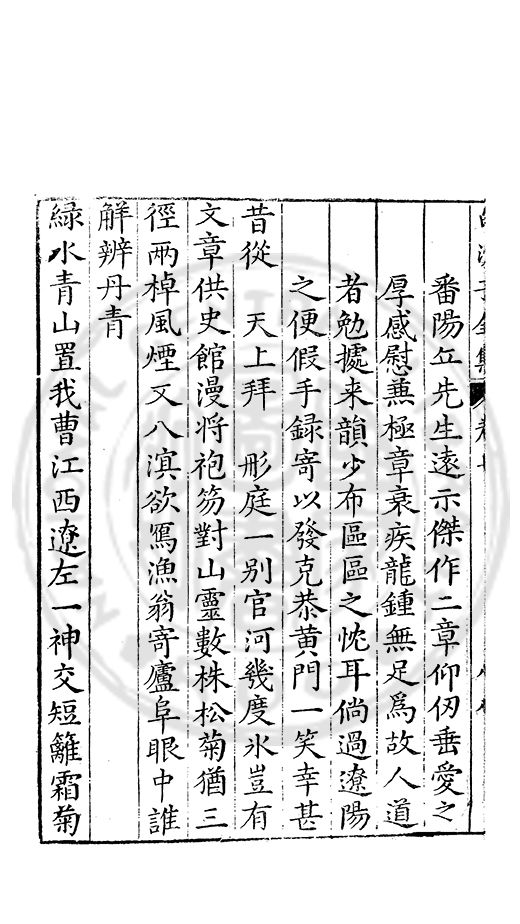 番陽丘先生遠示傑作二章仰仞垂愛之
厚感慰兼極章衰疾龍鍾無足爲故人道
者勉摭来韻少布區區之忱耳倘過遼陽
之便假手録寄以發克恭黄門一笑幸甚
昔從 天上拜 彤庭一别官河幾度氷豈有
文章供史館漫將袍笏對山靈數株松菊猶三
徑兩棹風煙又八溟欲寫漁翁寄廬阜眼中誰
解辨丹青
緑水青山置我曹江西遼左一神交短籬霜菊